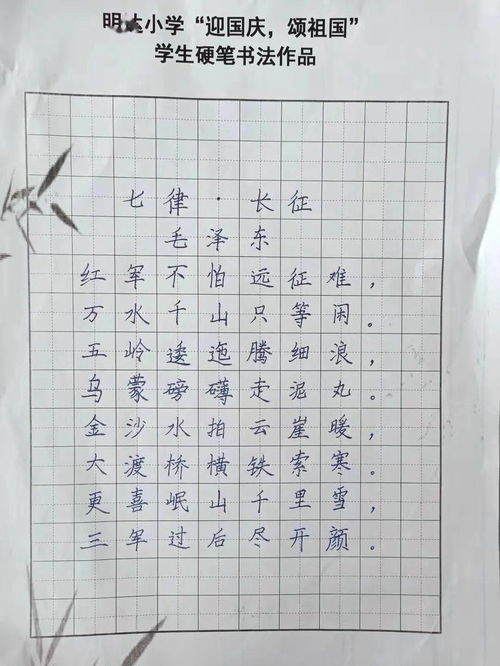 明达小学“迎国庆，颂祖国”
学生硬笔书法作品
七律·长征
毛泽东
红军不怕远征难，
万水千山只等闲。
五岭逶迤腾细浪，
乌蒙磅礴走泥丸。
金沙水拍云崖暖，
大渡桥横铁索寒。
更喜岷山千里雪，
三军过后尽开颜。